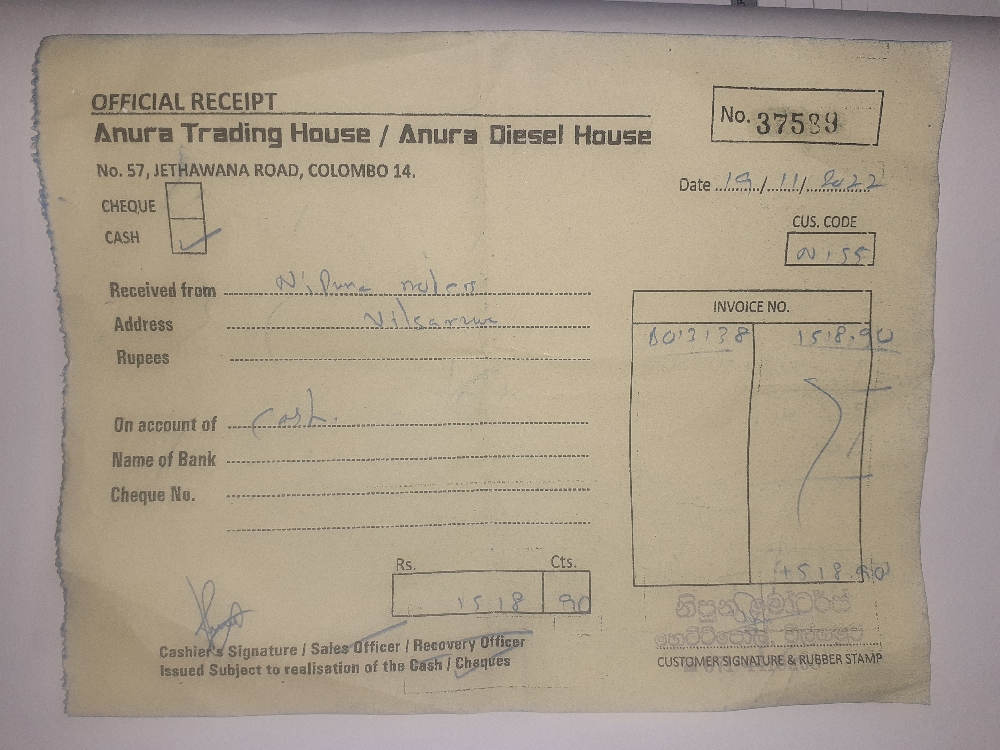 OFFICIAL RECEIPT
Anura Trading House / Anura Diesel House
No. 37539
No. 57, JETHAWANA ROAD, COLOMBO 14.
Date 19/11/2022
CHEQUE
CASH
CUS. CODE
Ni55
Received from
Address
Rupees
INVOICE NO.
B013138 1518.90
On account of Cash.
Name of Bank
Cheque No.
Rs. Cts.
1518 90
1518.90
නිපුන මෝටර්ස්
Cashier's Signature / Sales Officer / Recovery Officer
Issued Subject to realisation of the Cash / Cheques
CUSTOMER SIGNATURE & RUBBER STAMP